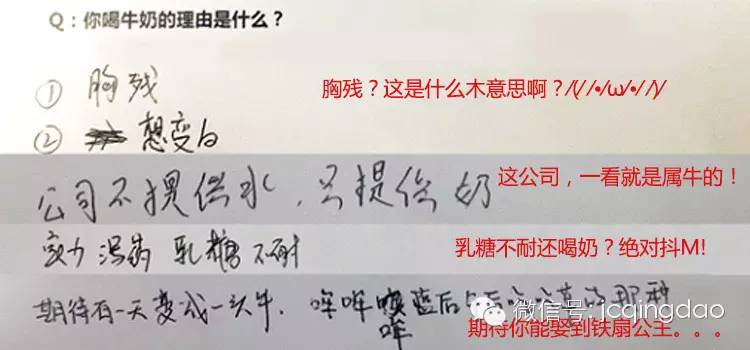 Q：你喝牛奶的理由是什么？
① 胸残
胸残？这是什么木意思啊？⁄(⁄ ⁄•⁄ω⁄•⁄ ⁄)⁄
② 想变白
公司不提供水，只提供奶
这公司，一看就是属牛的！
乳糖不耐
乳糖不耐还喝奶？绝对抖M!
期待有一天变成一头牛、哞哞
哞
微信号：jcqingdao
期待你能娶到铁扇公主。。。